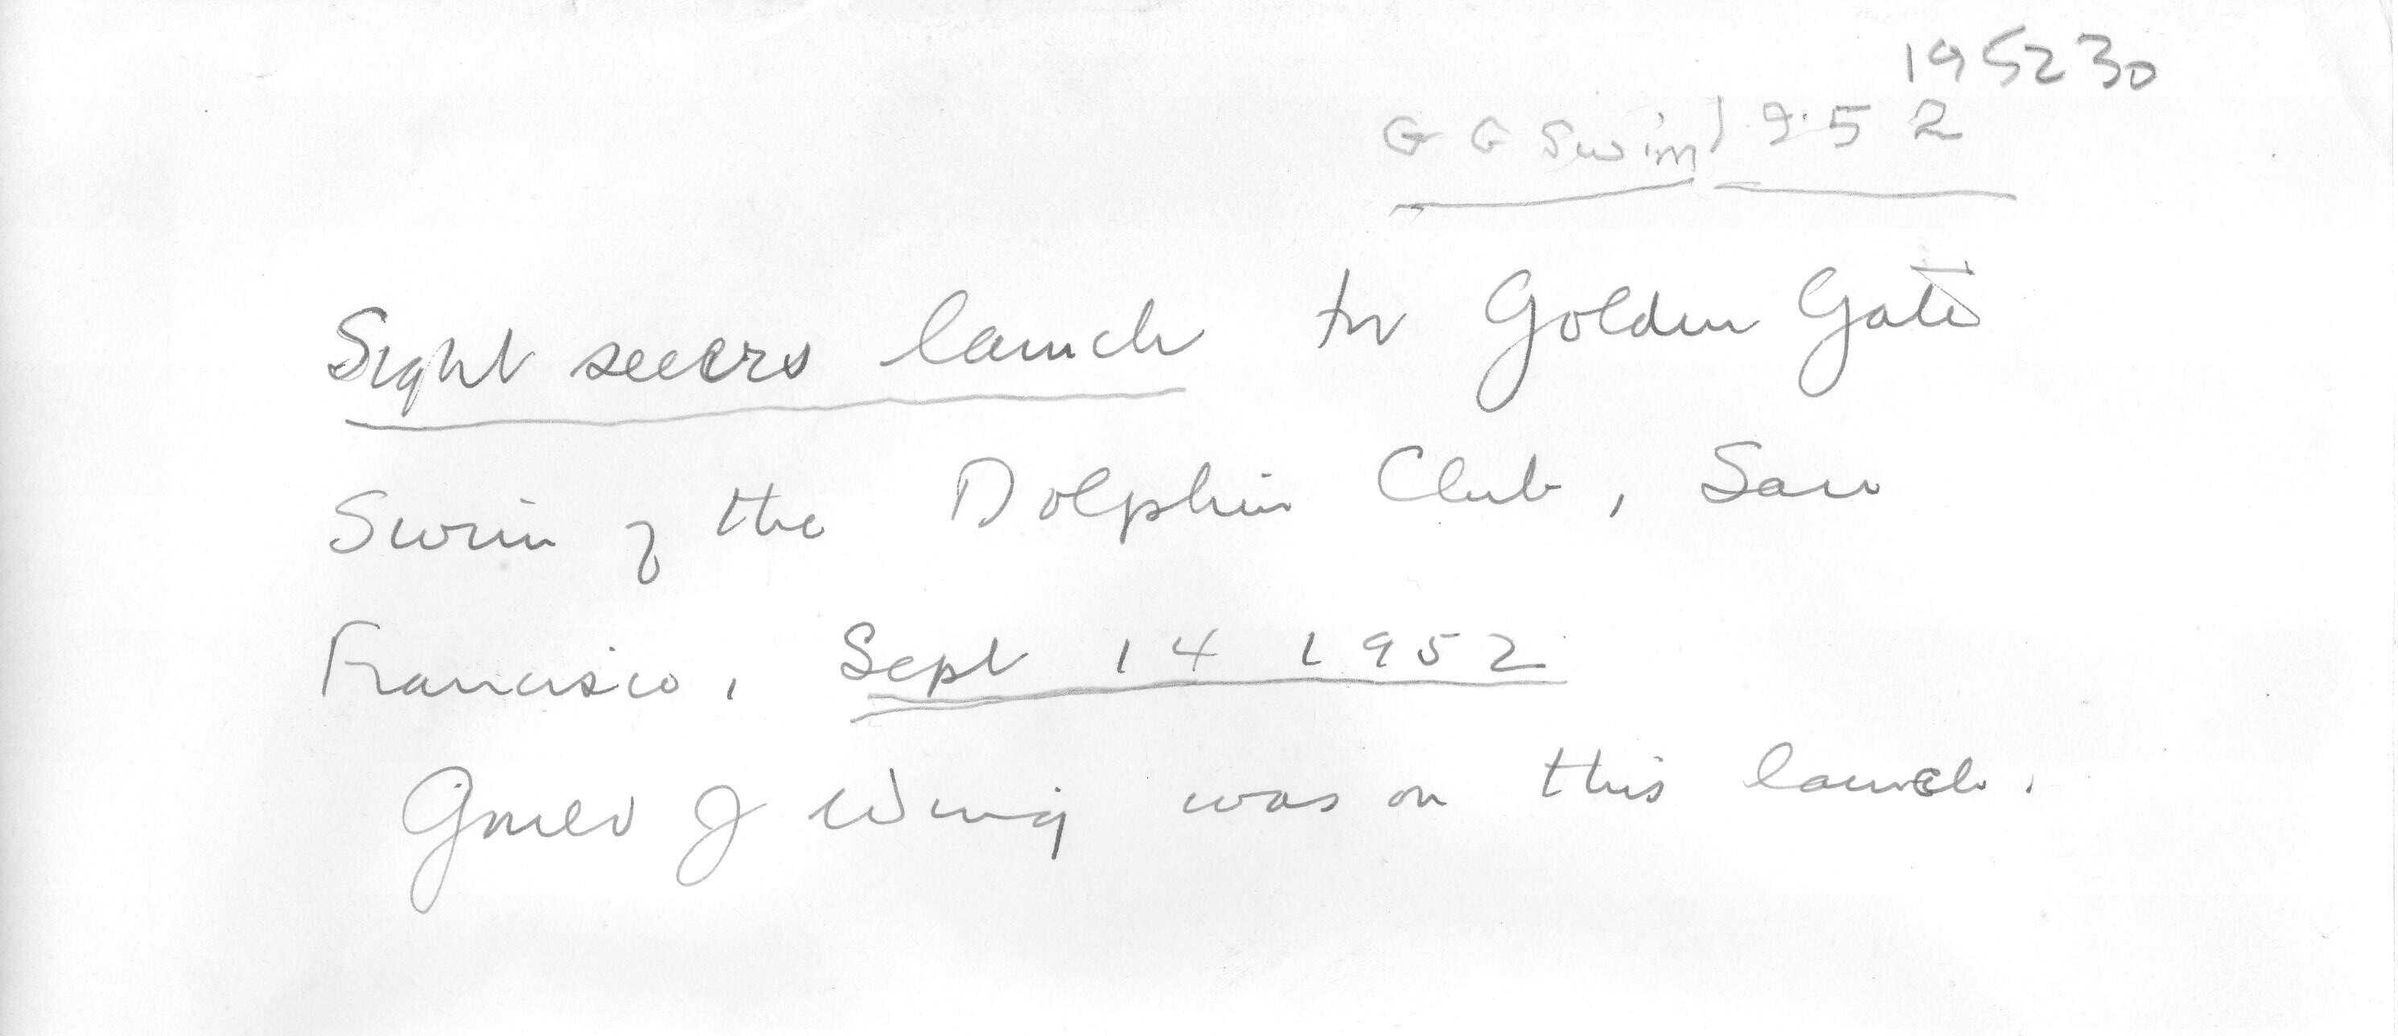 195230
G G Swim 1952
Sight seeers launch to Golden Gate
Swim of the Dolphin Club, San
Francisco, Sept 14 1952
J Wing was on this launch.